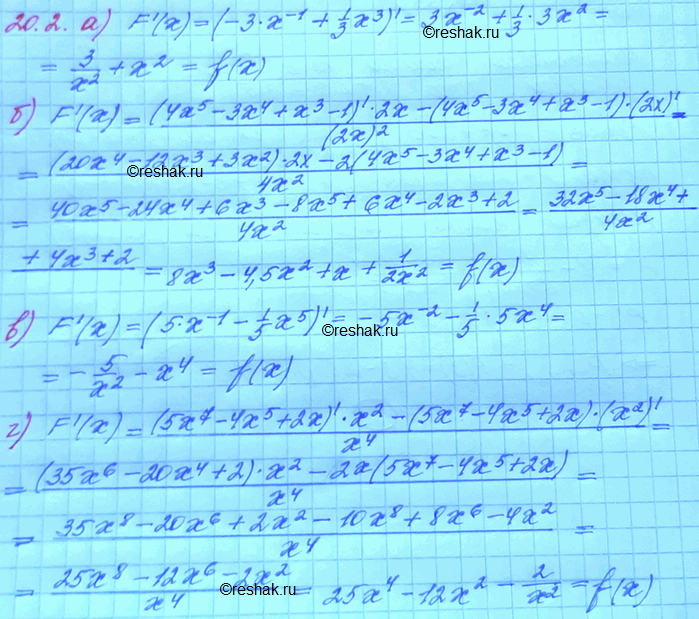 20.2. а) F'(x) = (-3·x⁻¹ + 1/3 x³)' = 3x⁻² + 1/3 · 3x² =
©reshak.ru
= 3/x² + x² = f(x)
б) F'(x) = ((4x⁵ - 3x⁴ + x³ - 1)' · 2x - (4x⁵ - 3x⁴ + x³ - 1) · (2x)')/(2x)² =
= ((20x⁴ - 12x³ + 3x²) · 2x - 2(4x⁵ - 3x⁴ + x³ - 1))/4x² =
©reshak.ru
= (40x⁵ - 24x⁴ + 6x³ - 8x⁵ + 6x⁴ - 2x³ + 2)/4x² = (32x⁵ - 18x⁴ +)/4x²
+ 4x³ + 2 = 8x³ - 4,5x² + x + 1/2x² = f(x)
в) F'(x) = (5·x⁻¹ - 1/5 x⁵)' = -5x⁻² - 1/5 · 5x⁴ =
©reshak.ru
= - 5/x² - x⁴ = f(x)
г) F'(x) = ((5x⁷ - 4x⁵ + 2x)' · x² - (5x⁷ - 4x⁵ + 2x) · (x²)')/x⁴ =
= ((35x⁶ - 20x⁴ + 2) · x² - 2x(5x⁷ - 4x⁵ + 2x))/x⁴ =
= (35x⁸ - 20x⁶ + 2x² - 10x⁸ + 8x⁶ - 4x²)/x⁴ =
= (25x⁸ - 12x⁶ - 2x²)/x⁴ = 25x⁴ - 12x² - 2/x² = f(x)
©reshak.ru